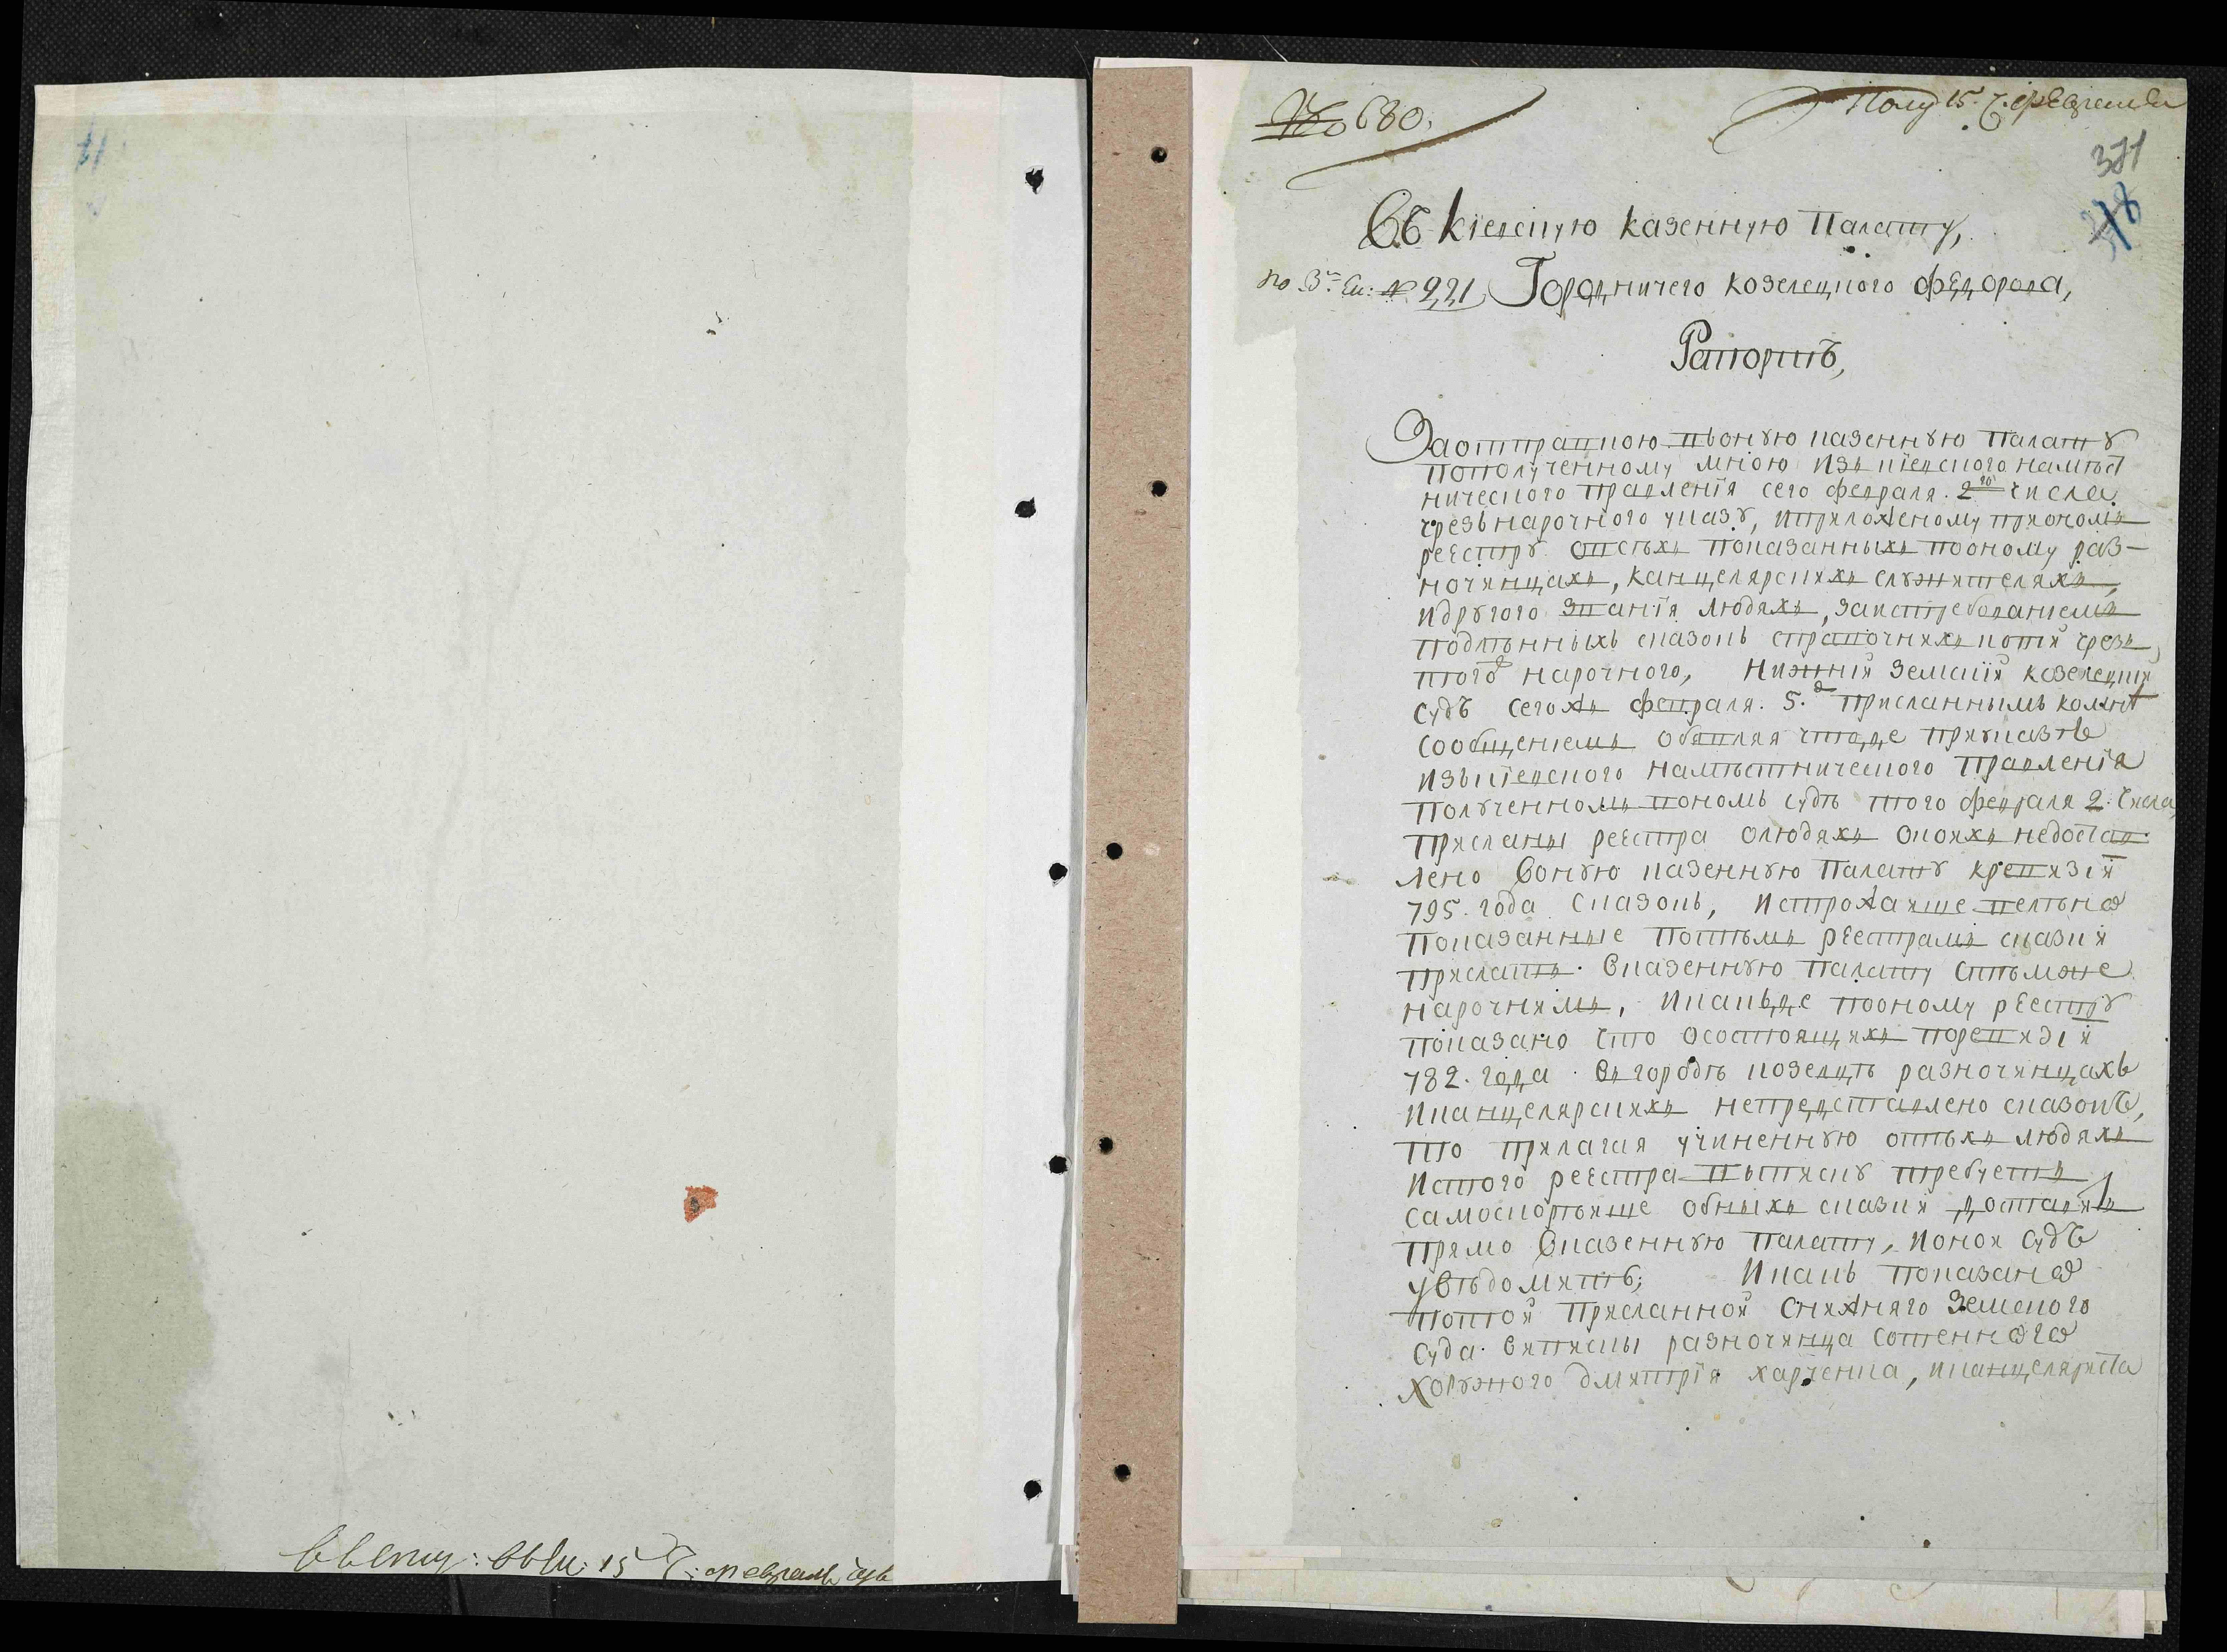 № 680.
Полу 15. февраля
371
Въ Кіевскую казенную Палату,
по 3й Эк: № 221 Городничего козелецкого Федорова,
Рапортъ,
Заотправкою въоную казенную Палату
пополученному мною изъ кіевского намѣст
нического правленія сего февраля 2го числа
чрезънарочного указу, иприложеному приономъ
реестру овсѣхъ показанныхъ пооному раз-
ночинцахъ, канцелярскихъ служителяхъ,
идругого званія людяхъ, заистребованіемъ
подлѣнныхъ сказокъ справочнихъ
того нарочного, Нижній Земскій козелецкій
Судъ сегожъ февраля. 5. присланнымъ комнѣ
сообщеніемъ объявляя чтоде приуказѣ
изъкіевского намѣстнического Правленія
Полученномъ вономъ судѣ того февраля 2. числа,
присланы реестра олюдяхъ окоихъ недостав
лено Воную казенную Палату кревизіи
795. года Сказокъ,
Показанные потѣмъ реестрамъ сказки
прислать Вказенную Палату стѣмже
нарочнимъ, икакъде пооному реестру
показано что осостоящихъ поревизіи
782. года Вгородѣ козелцѣ разночинцахъ
иканцелярскихъ непредставлено сказокъ,
то прилагая учиненную отѣхъ людяхъ
истого реестра выписку требуетъ
самоскорѣйше обныхъ сказки доставить
прямо Вказенную Палату, ионой Судъ
увѣдомить; Икакъ показано
потой присланной снижняго Земского
Суда виписки разночинца сотенного
Хоружого Дмитрія харченка, иканцеляриста
15 февраля